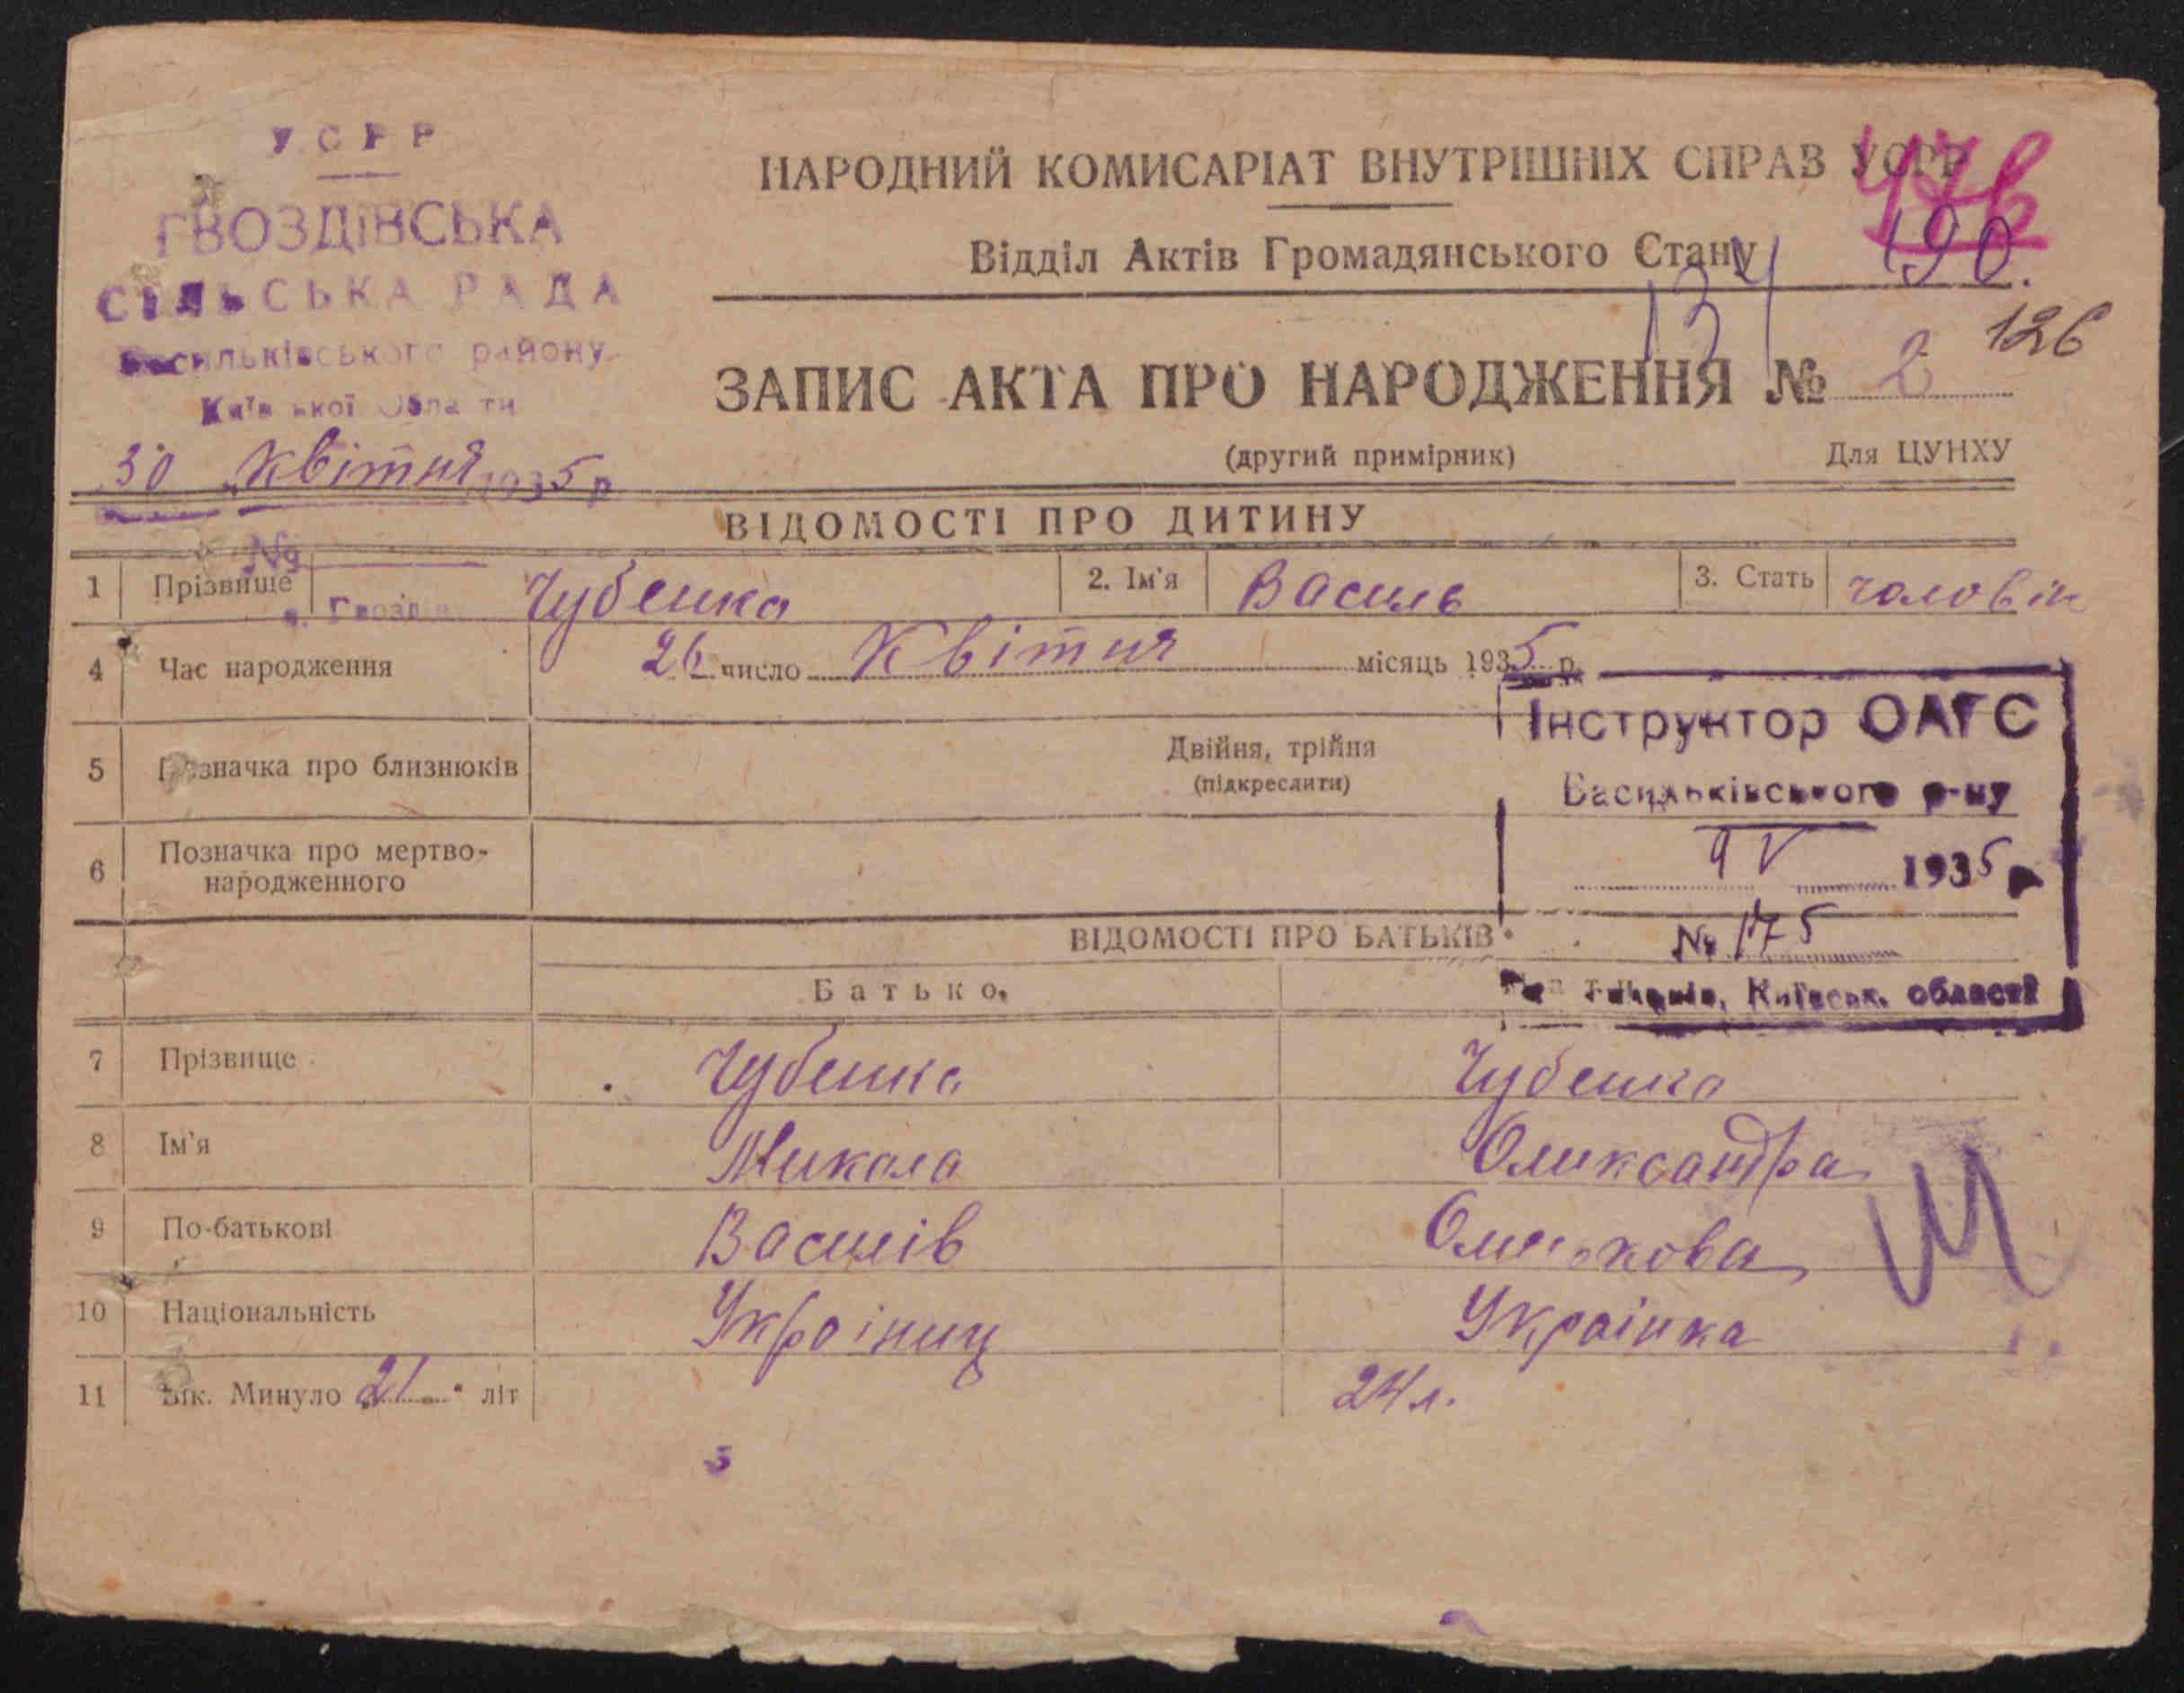 УСРР
ГВОЗДІВСЬКА
СІЛЬСЬКА РАДА
Васильківського району
Київської Области
30 Квітня 1935 р
№
с. Гвоздів
НАРОДНИЙ КОМИСАРІАТ ВНУТРІШНІХ СПРАВ УСРР
476
Відділ Актів Громадянського Стану
134 190.
ЗАПИС АКТА ПРО НАРОДЖЕННЯ № 2 126
(другий примірник) Для ЦУНХУ
ВІДОМОСТІ ПРО ДИТИНУ
1 Прізвище Чубенко 2. Ім'я Василь 3. Стать чоловік
4 Час народження 26 число Квітня місяць 1935 р.
Інструктор ОАГС
Васильківського р-ну
9 V 1935 р
№ 175
Київськ. області
5 Позначка про близнюків Двійня, трійня
(підкреслити)
6 Позначка про мертво-
народженного
ВІДОМОСТІ ПРО БАТЬКІВ
Батько
7 Прізвище Чубенко Чубенко
8 Ім'я Микола Олександра
9 По-батькові Василів
10 Національність Украінец Украінка
11 Вік. Минуло 21 літ 24 л.